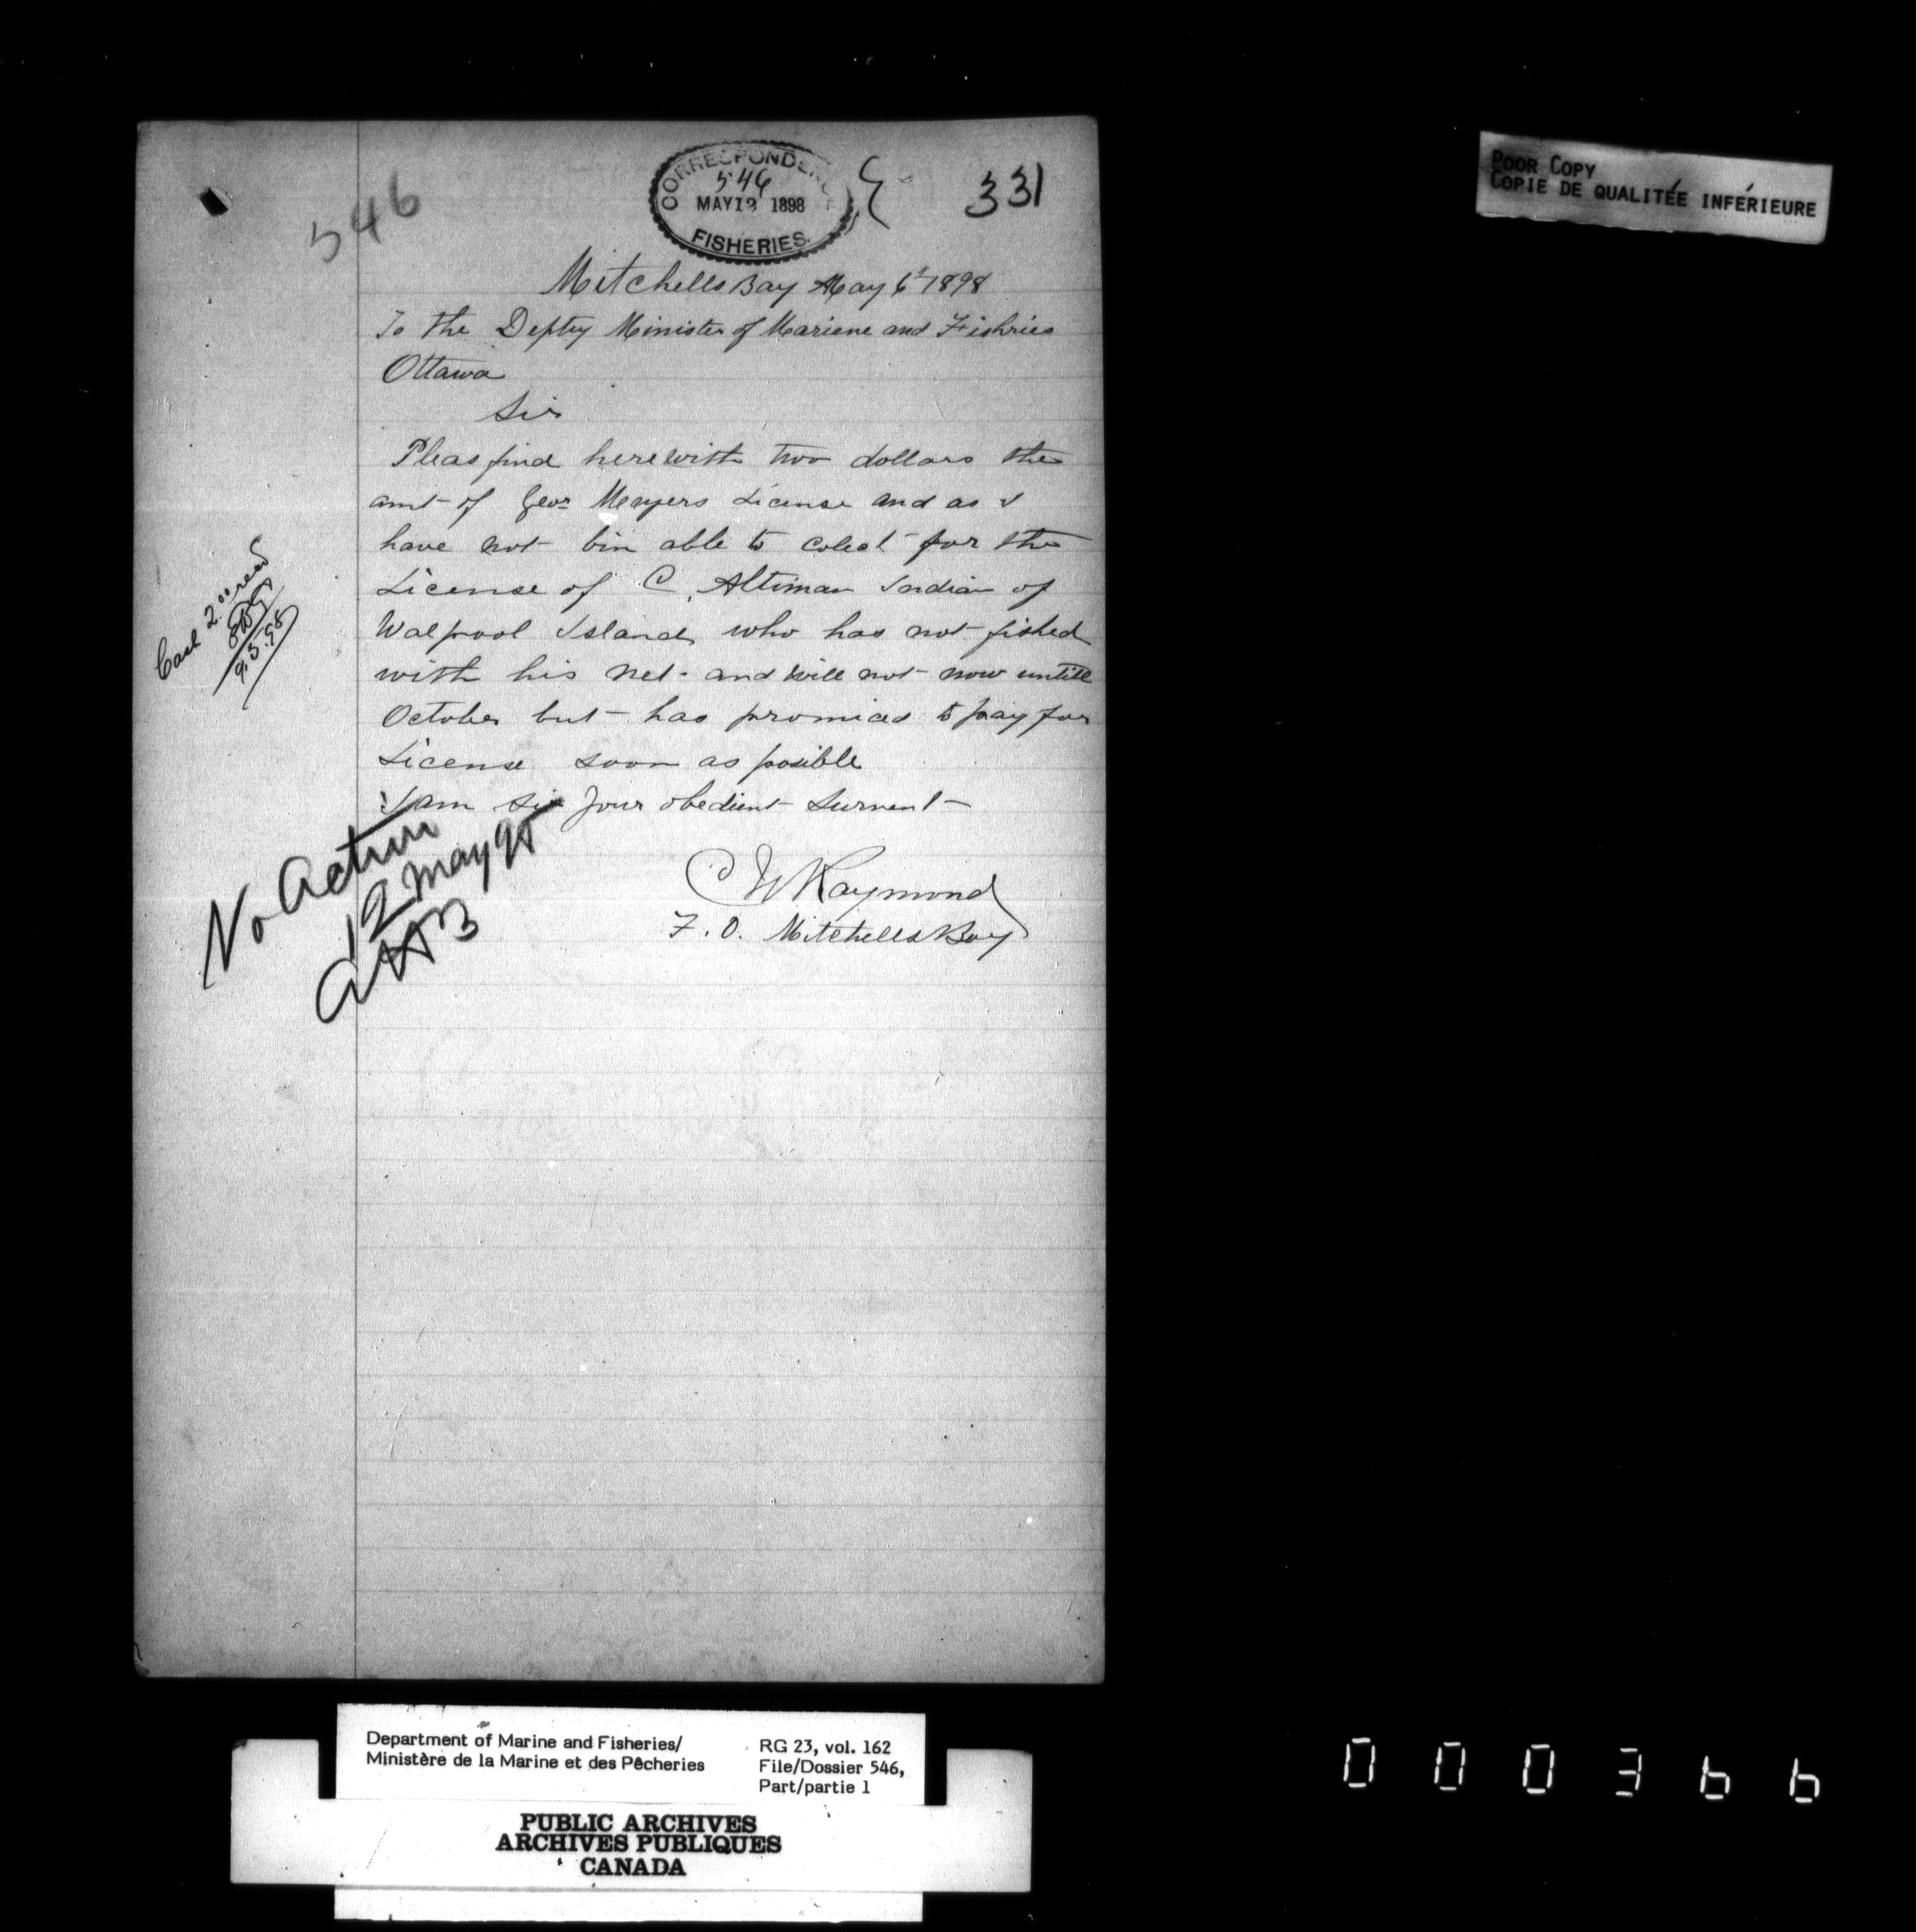 POOR COPY
COPIE DE QUALITÉE INFÉRIEURE
546
CORRESPONDENCE
546
MAY 12 1898
FISHERIES.
331
Mitchells Bay May 6th 1898
To the Depty Minister of Mariene and Fishries
Ottawa
Sir
Pleas find herewith two dollars the
amt of Geo Meyers License and as I
have not bin able to colect for the
License of C. Altiman Indian of
Walpool Island who has not fished
with his net and will not now untill
October but has promiced to pay for
License soon as posible
I am Sir your obedient Survent
C W Raymond
F. O. Mitchells Bay
Cash 2.00 recd
9.5.98
No Action
12 May 98
Department of Marine and Fisheries/
Ministère de la Marine et des Pêcheries
RG 23, vol. 162
File/Dossier 546,
Part/partie 1
PUBLIC ARCHIVES
ARCHIVES PUBLIQUES
CANADA
000366